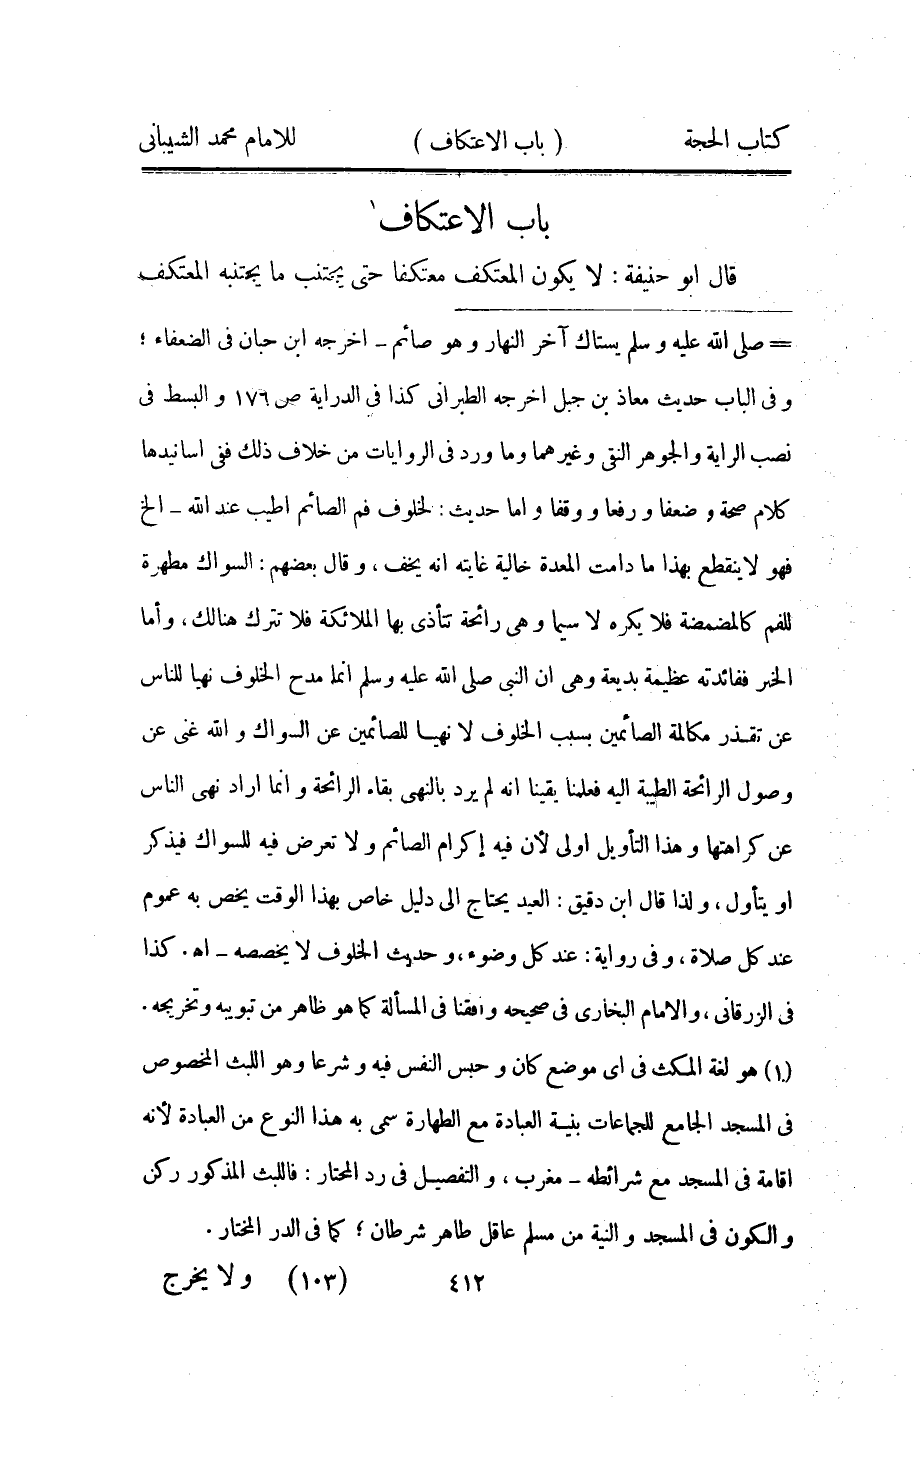 كتاب الحجة ( باب الاعتكاف ) للامام محمد الشيبانى
باب الاعتكاف١
قال ابو حنيفة : لا يكون المعتكف معتكفا حتى يجتنب ما يجتنبه المعتكف
= صلى الله عليه و سلم يستاك آخر النهار و هو صائم – اخرجه ابن حبان فى الضعفاء ؛
و فى الباب حديث معاذ بن جبل اخرجه الطبرانى كذا فى الدراية ص ١٧٦ و البسط فى
نصب الراية والجوهر النقى وغيرهما وما ورد فى الروايات من خلاف ذلك ففى اسانيدها
كلام صحة و ضعفا و رفعا و وقفا و اما حديث : لخلوف فم الصائم اطيب عند الله – الخ
فهو لاينقطع بهذا ما دامت المعدة خالية غايته انه يخف ، و قال بعضهم : السواك مطهرة
للفم كالمضمضة فلا يكره لا سيما و هى رائحة تتأذى بها الملائكة فلا تترك هنالك ، و أما
الخبر ففائدته عظيمة بديعة وهى ان النبى صلى الله عليه وسلم انما مدح الخلوف نهيا للناس
عن تقذر مكالمة الصائمين بسبب الخلوف لا نهيا للصائمين عن السواك و الله غنى عن
وصول الرائحة الطيبة اليه فعلمنا يقينا انه لم يرد بالنهى بقاء الرائحة و انما اراد نهى الناس
عن كراهتها و هذا التأويل اولى لأن فيه إكرام الصائم و لا تعرض فيه للسواك فيذكر
او يتأول ، و لذا قال ابن دقيق : العيد يحتاج الى دليل خاص بهذا الوقت يخص به عموم
عند كل صلاة ، و فى رواية : عند كل وضوء ، و حديث الخلوف لا يخصصه – اه . كذا
فى الزرقانى ، والامام البخارى فى صحيحه وافقنا فى المسألة كما هو ظاهر من تبويبه وتخريجه .
(١) هو لغة المكث فى اى موضع كان و حبس النفس فيه و شرعا وهو اللبث المخصوص
فى المسجد الجامع للجماعات بنية العبادة مع الطهارة سمى به هذا النوع من العبادة لأنه
اقامة فى المسجد مع شرائطه – مغرب ، و التفصيل فى رد المحتار : فاللبث المذكور ركن
و الكون فى المسجد و النية من مسلم عاقل طاهر شرطان ؛ كما فى الدر المختار .
٤١٢ (١٠٣) و لا يخرج